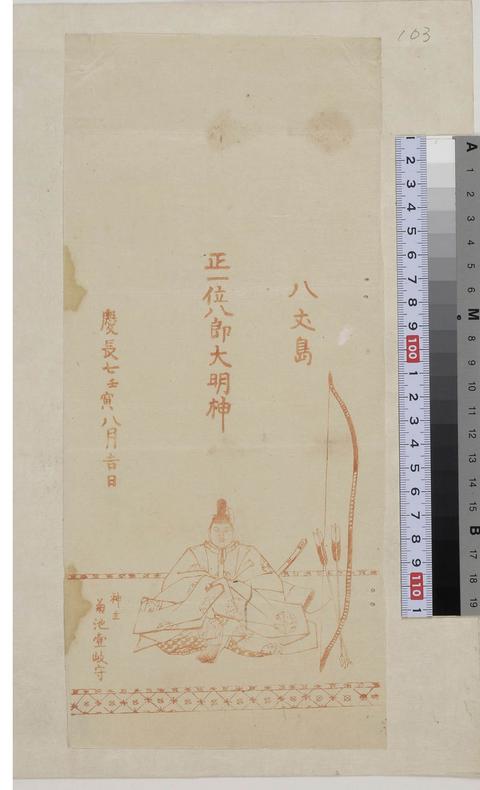 103
八丈島
正一位八郎大明神
慶長七壬寅八月吉日
神主
菊池壹岐守
2
3
4
5
6
7
8
9
100
1
2
3
4
5
6
7
8
9
110
1
A
1
2
3
4
5
6
M
8
9
10
11
12
13
14
15
B
17
18
19